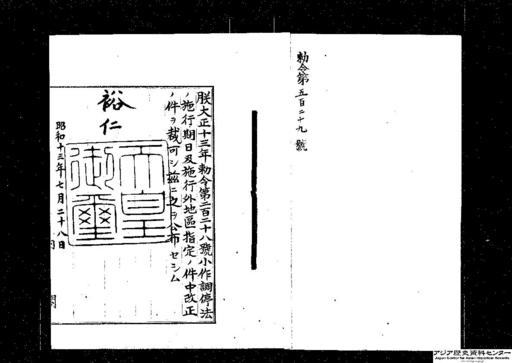 勅令第五百二十九號
朕大正十三年勅令第二百二十八號小作調停法
ノ施行期日及施行外地區指定ノ件中改正
ノ件ヲ裁可シ茲ニ之ヲ公布セシム
裕仁
天皇御璽
昭和十三年七月二十八日
内
閣
アジア歴史資料センター
Japan Center for Asian Historical Records